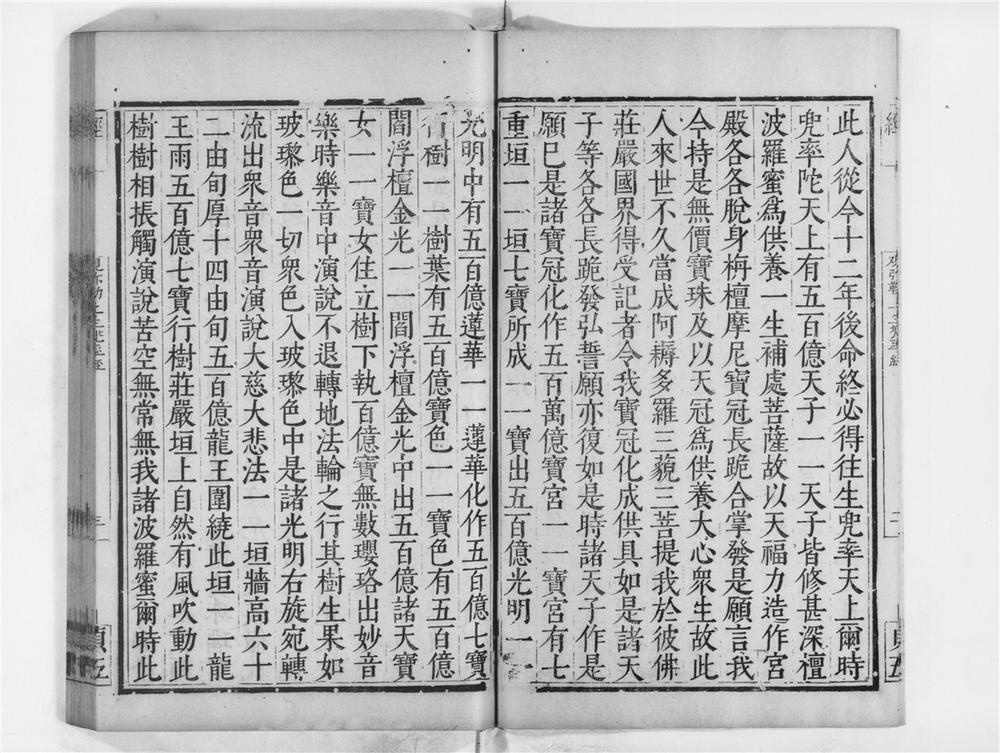 此人從今十二年後命終必得往生兜率天上爾時
兜率陀天上有五百億天子一一天子皆修甚深檀
波羅蜜爲供養一生補處菩薩故以天福力造作宮
殿各各脫身栴檀摩尼寶冠長跪合掌發是願言我
今持是無價寶珠及以天冠爲供養大心衆生故此
人來世不久當成阿耨多羅三藐三菩提我於彼佛
莊嚴國界得受記者令我寶冠化成供具如是諸天
子等各各長跪發弘誓願亦復如是時諸天子作是
願已是諸寶冠化作五百萬億寶宮一一寶宮有七
重垣一一垣七寶所成一一寶出五百億光明一
光明中有五百億蓮華一一蓮華化作五百億七寶
行樹一一樹葉有五百億寶色一一寶色有五百億
閻浮檀金光一一閻浮檀金光中出五百億諸天寶
女一一寶女住立樹下執百億寶無數瓔珞出妙音
樂時樂音中演說不退轉地法輪之行其樹生果如
玻瓈色一切衆色入玻瓈色中是諸光明右旋宛轉
流出衆音衆音演說大慈大悲法一一垣牆高六十
二由旬厚十四由旬五百億龍王圍繞此垣一一龍
王雨五百億七寶行樹莊嚴垣上自然有風吹動此
樹樹相掁觸演說苦空無常無我諸波羅蜜爾時此